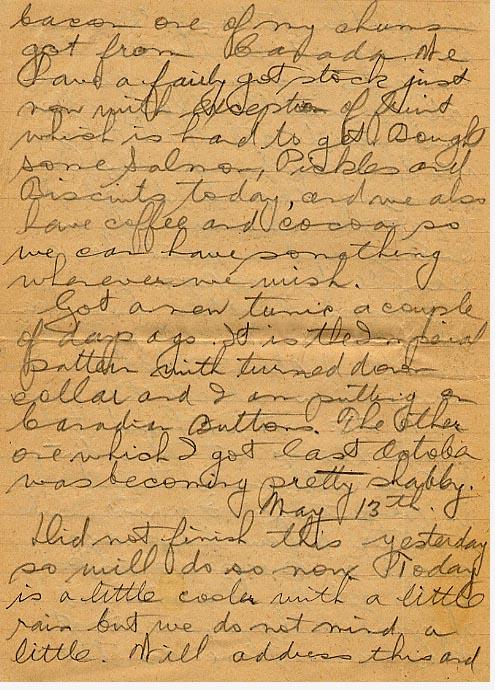 bacon one of my chums
got from Canada. We
have a fairly got stock just
now with exception of fruit
which is hard to get. Bough
some Salmon, Pickles and
Biscuits today, and we also
have coffee and cocoa so
we can have somathing
whenever we wish.
Got a new tunic a couple
of days ago. It is the Imperial
pattern with turned down
collar and I am putting on
Canadian Buttons. The other
one which I got last Octoba
was becoming pretty shabby.
May 13th.
Did not finish this yesterday
so will do so now. Today
is a little cooler with a little
rain but we do not mind a
little. Will address this and